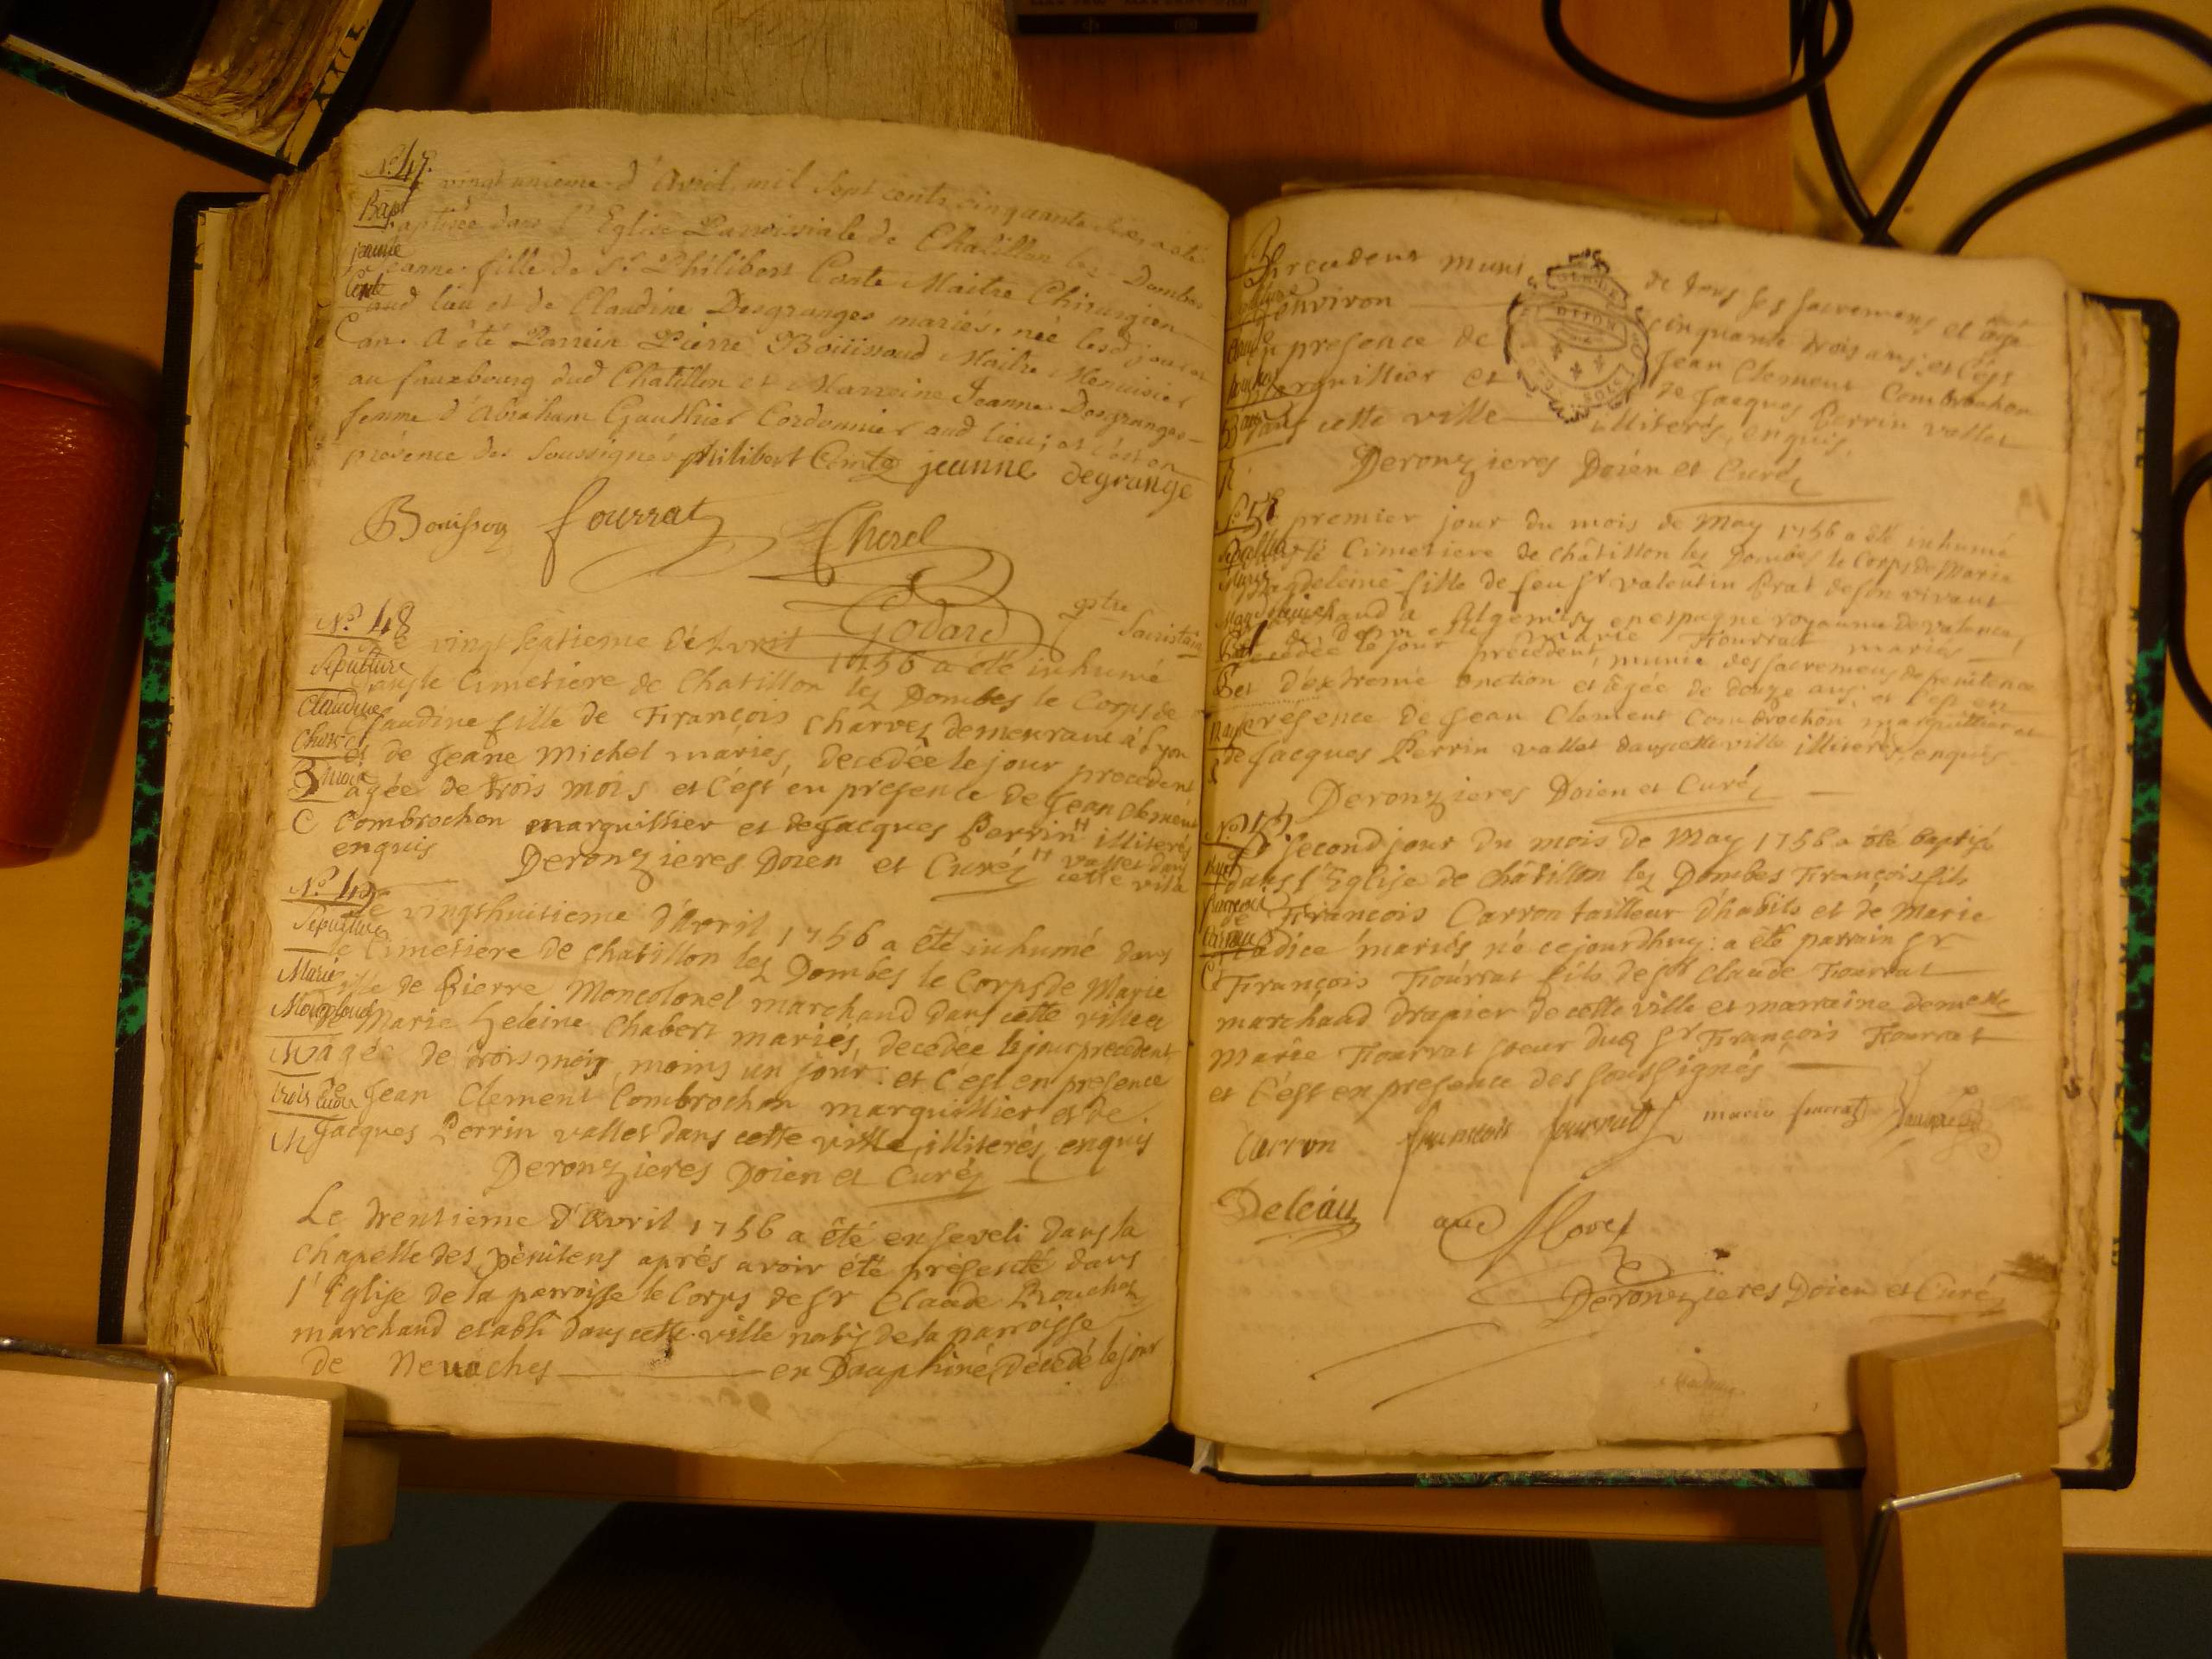 N.º 47.
Bapt
jeanne
Comte
vingt unieme d'Avril, mil sept cents cinquante six, a été
baptisée dans l'Eglise Parroissiale de Chatillon lez-Dombes
jeanne fille de Sr. Philibert Comte Maitre Chirurgien
aud lieu et de Claudine Desgranges mariés, née lesd jour et
an. A été Parrein Pierre Boüissoud Maitre Menuisier
au fauxbourg dud Chatillon et Marreine Jeanne Desgranges
femme d'Abraham Gauthier Cordonnier aud lieu; et c'est en
présence des soussignés philibert Comte jeanne degrange
Bouisson fourrat Cherel
Godard ptre Sacristain
N.º 48
Sepulture
Claudine
Charvet
3 mois
C
Le vingt septieme d'Avril 1756 a été inhumé
dans le Cimetiere de Chatillon lez Dombes le Corps de
Claudine fille de François Charvez demeurant à Lyon
et de Jeane Michel mariés, decédée le jour precedent
agée de trois mois et c'est en presence de Jean Clement
Combrochon marguillier et de Jacques Perrin H illiterés
enquis Deronzieres Doien et Curé H vallet dans
cette ville
N.º 49
Sepulture
Marie
Moncolonel
trois
M
Le vingthuitieme d'Avril 1756 a été inhumé dans
le Cimetiere de chatillon lez Dombes le Corps de Marie
fille de Pierre Moncolonel marchand dans cette ville et
de Marie heleine Chabert mariés, decédée le jour precedent
agée de trois mois, moins un jour: et c'est en presence
de Jean Clement Combrochon marguillier et de
Jacques Perrin vallet dans cette ville, illiterés, enquis
Deronzieres Doien et Curé
Le trentieme d'Avril 1756 a été enseveli dans la
chapelle des pénitens aprés avoir été présenté dans
l'Eglise de la parroisse le Corps de sr Claude Rouchas
marchand etabli dans cette ville natif de la parroisse
de Nevaches en Dauphiné, Décédé le jour
precedent muni de tous ses sacremens et agé
d'environ cinquante trois ans; et c'est
en presence de Jean Clement Combrochon
Marguillier et de Jacques Perrin vallet
dans cette ville illiterés, enquis,
Deronzieres Doien et Curé
Sepulture
Marie
Le premier jour du mois de May 1756 a été inhumé
dans le Cimetiere de châtillon lez Dombes le Corps de Marie
Magdeleine fille de feu sr valentin Prat de son vivant
marchand a Algemisy en espagne royaume de valence,
et de Demelle Marie Fourrat mariés
decedée le jour precedent, munie des sacremens de penitence
et d'extreme onction et agée de douze ans; et c'est en
presence de Jean Clement Combrochon marguillier et
de Jacques Perrin vallet dans cette ville illiterés, enquis
Deronzieres Doien et Curé
Bapt
françois
Carron
Le second jour du mois de May 1756 a été baptisé
dans l'Eglise de châtillon lez Dombes François fils
de François Carron tailleur d'habits et de Marie
mariés, né cejourdhuy: a été parrain sr
François Fourrat fils de sr Claude Fourrat
marchand drapier de cette ville et marraine demelle
Marie Fourrat soeur dud sr François Fourrat
et c'est en presence des soussignés
Carron francois fourrat marie fourrat
Deleau aud Morel
Deronzieres Doien et Curé